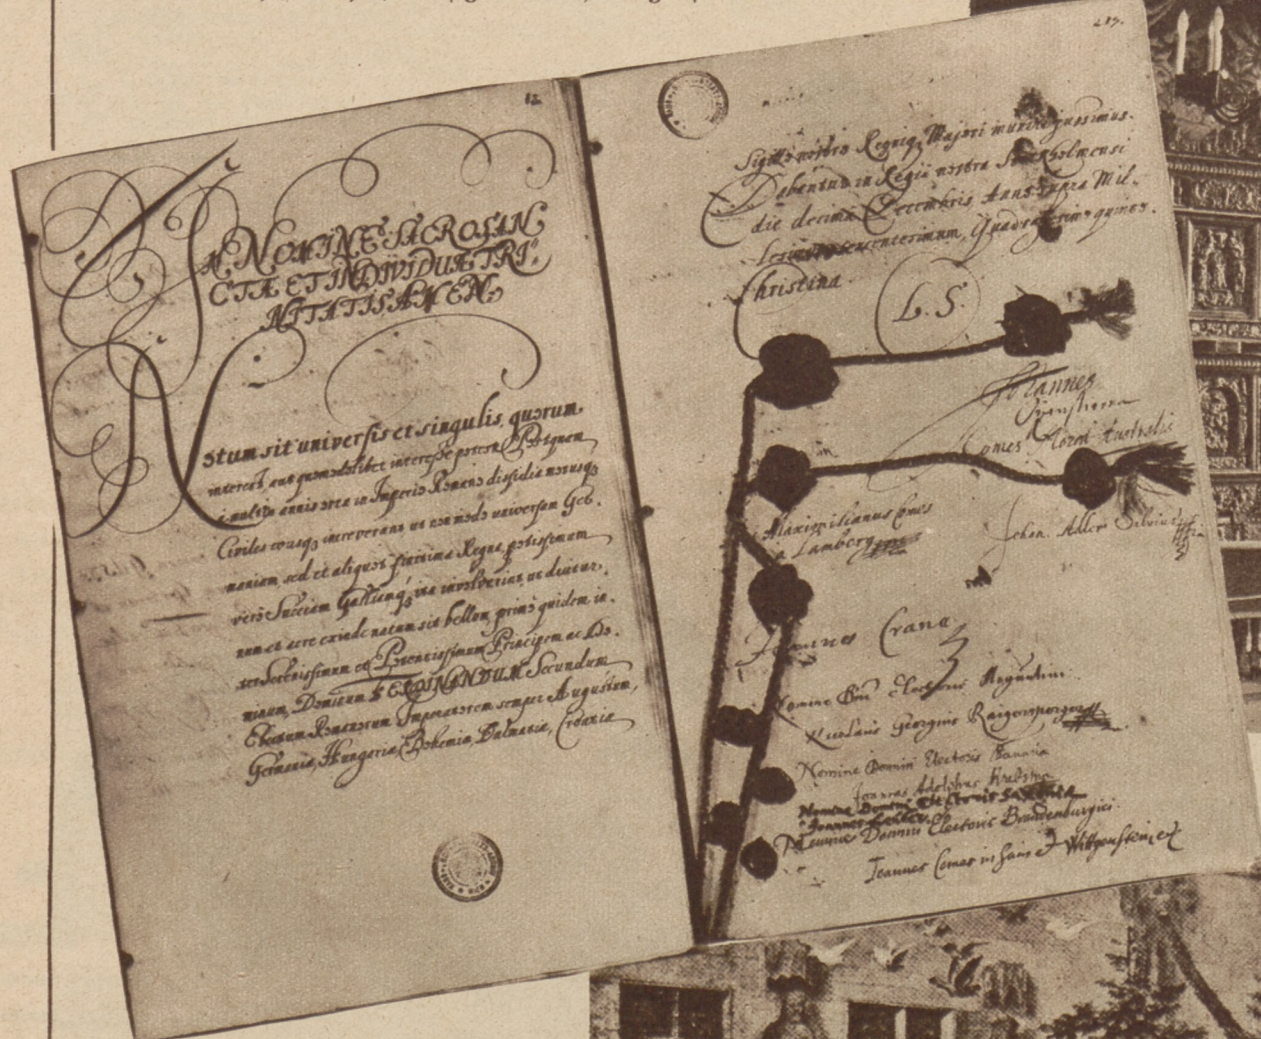 12.
IN NOMINE SACROSAN
CTÆ ET INDIVIDUÆ TRI-
NITATIS AMEN.
Notum sit universis et singulis, quorum
interest, aut quomodolibet interesse potest. Postquam
a multis annis orta in Imperio Romano dissidia motusq
Civiles eousq increverant ut non modo universam Ger-
maniam, sed et aliquot finitima Regna, potissimum
vero Sueciam Galliamq ita involverint, ut diutur-
num et acre exinde natum sit bellum, primo quidem in-
ter Serenissimum et Potentissimum Principem ac Do-
minum, Dominum FERDINANDUM Secundum
Electum Romanorum Imperatorem semper Augustum,
Germaniæ, Hungariæ, Bohemiæ, Dalmatiæ, Croatiæ
Sigillo nostro Regniq Majori muniri jussimus.
Dabantur in Regia nostra Stockholmensi
die decima Decembris Anno supra Mil-
lesimum sexcentesimum, Quadragesimo quinto.
Christina.
L. S.
Johannes
Oxenstierna
Comes Moreæ Australis
Maximilianus Comes
a Lamberg
Johan. Adler Salvius
Joannes Crane
Nomine Dni Electoris Moguntini
Nicolaus Georgius Raigersperger
Nomine Domini Electoris Bavariæ
Joannes Adolphus Krebs
Nomine Domini Electoris Saxoniæ
Joannes Leuber
Nomine Domini Electoris Brandenburgici
Joannes Comes in Sain et Wittgenstein